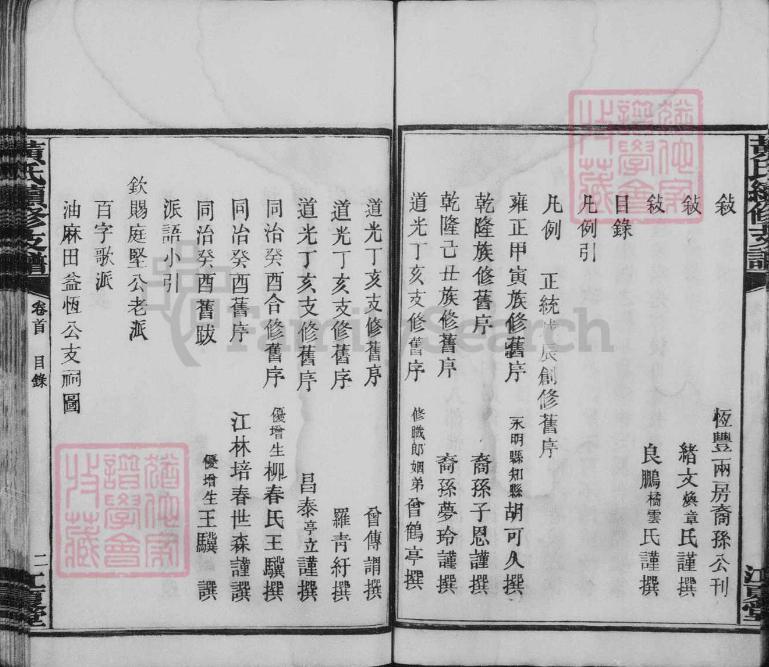 黃氏續修支譜
江夏堂
敍 恆豐兩房裔孫公刊
敍 緒文煥章氏謹撰
敍 良鵬橘雲氏謹撰
目錄
凡例引
凡例 正統戊辰創修舊序
雍正甲寅族修舊序 永明縣知縣胡可久撰
乾隆族修舊序 裔孫子恩謹撰
乾隆己丑族修舊序 裔孫夢玲謹撰
道光丁亥支修舊序 修職郎姻弟曾鶴亭撰
道光丁亥支修舊序 曾傳謂撰
道光丁亥支修舊序 羅青紆撰
道光丁亥支修舊序 昌泰亭立謹撰
同治癸酉合修舊序 優增生柳春氏王驥撰
同治癸酉舊序 江林培春世森謹撰
同治癸酉舊跋 優增生王驥 譔
派語小引
欽賜庭堅公老派
百字歌派
油麻田益恆公支祠圖
黃氏續修支譜
卷首 目錄
二
江夏堂
FamilySearch